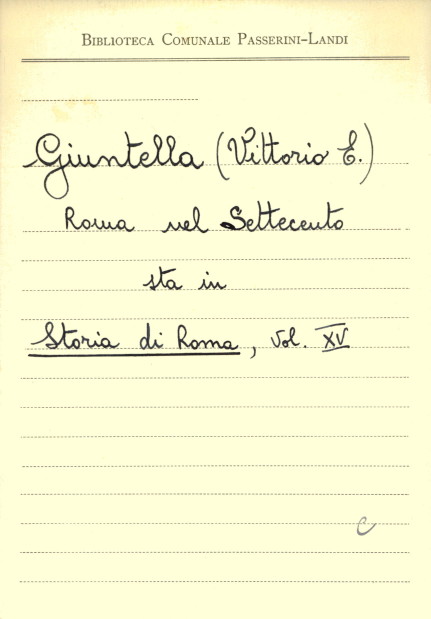 BIBLIOTECA COMUNALE PASSERINI-LANDI
Giuntella (Vittorio E.)
Roma nel Settecento
sta in
Storia di Roma, vol. XV
C